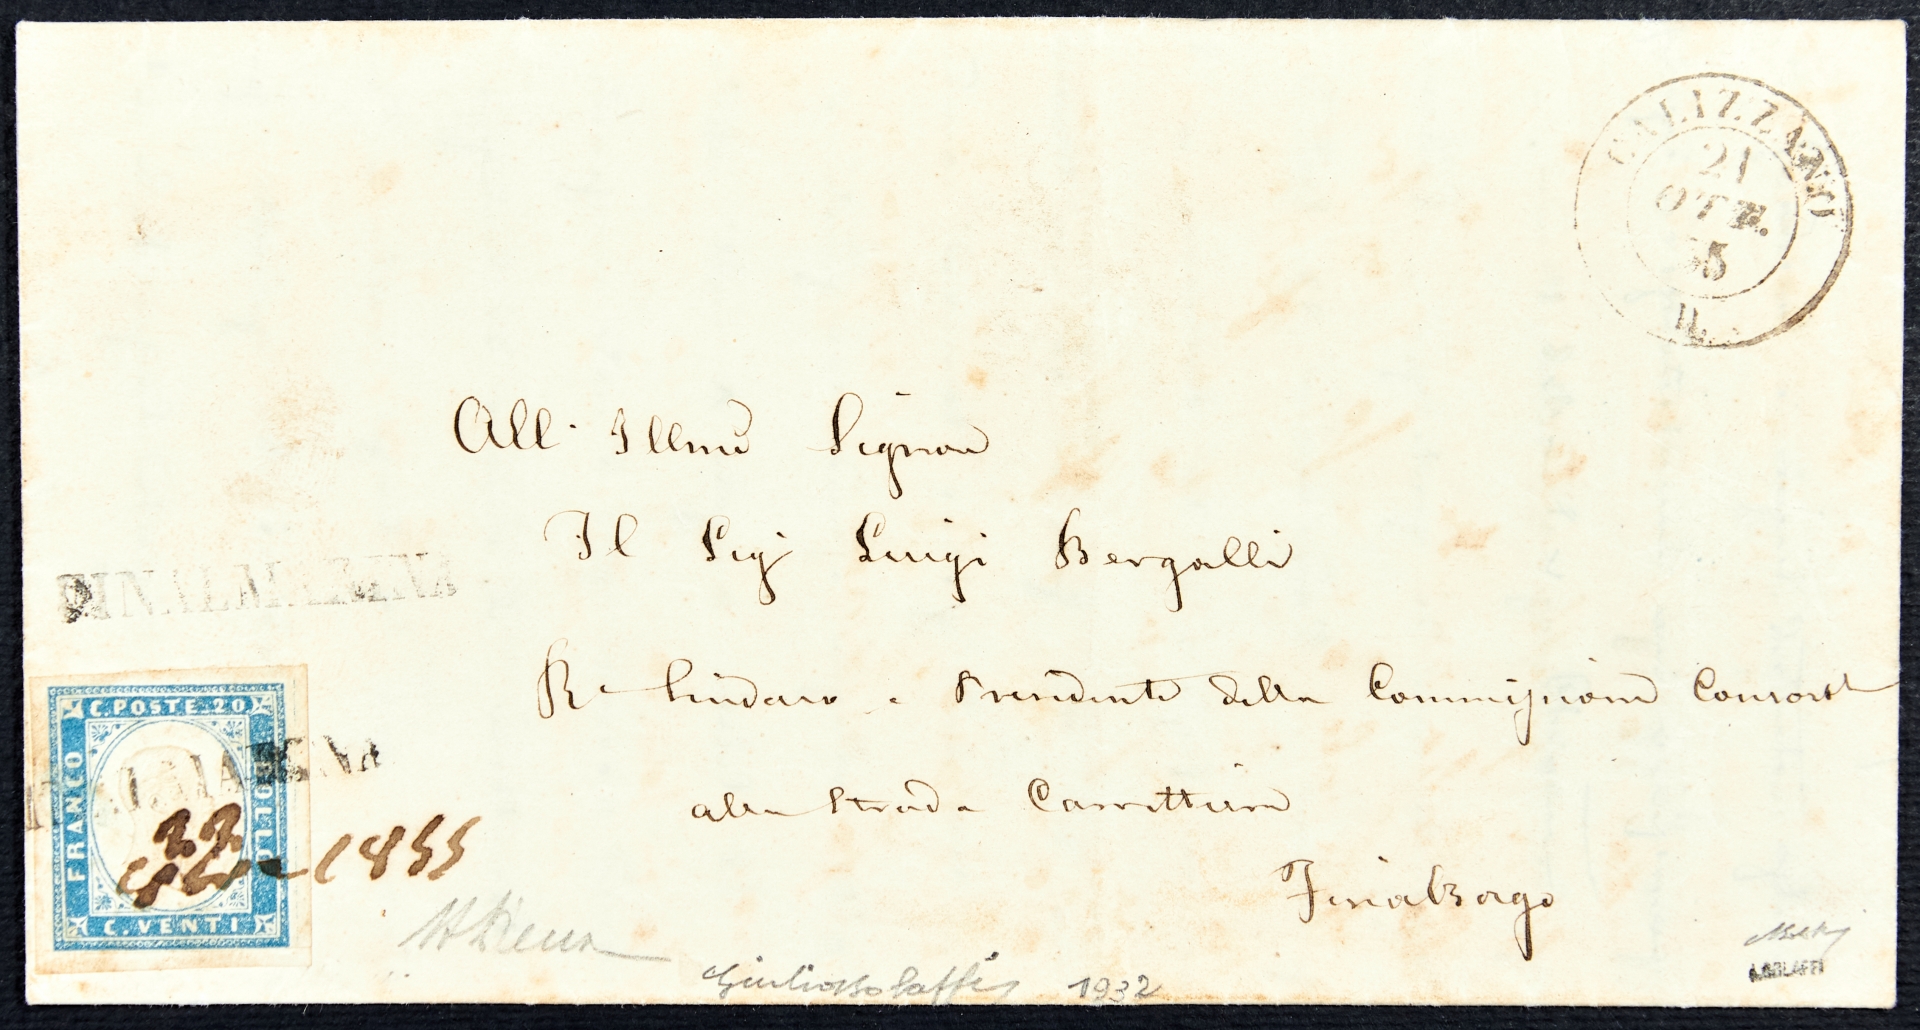 CALIZZANO
21
OTT.
55
All' Illmo Signor
Il Sig Luigi Bergalli
FINALMARINA
R Sindaco e Presidente della Commissione Consort
C. POSTE. 20
FRANCO
BOLLO
C. VENTI
FINALMARINA
22
8bre 1855
alla Strada Carrettiera
FinalBorgo
Giulio Bolaffi 1932
A. BOLAFFI